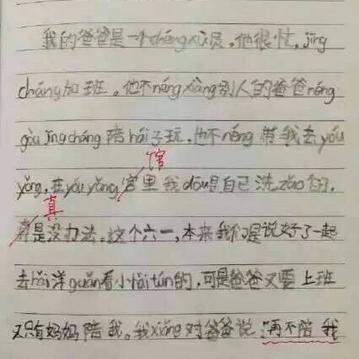 我的爸爸是一个chéng xù员，他很忙，jīng
cháng加班。他不néng xiàng别人的爸爸néng
gòu jīng cháng 陪hái子玩，他不néng 带我去yóu
yǒng，去yóu yǒng馆里我dōu是自己洗zǎo的，
真是没办法。这个六一，本来我们是说好了一起
去hǎi洋guǎn看小hǎi tún的，可是爸爸又要上班
又只有妈妈陪我。我xiǎng对爸爸说：再不陪我